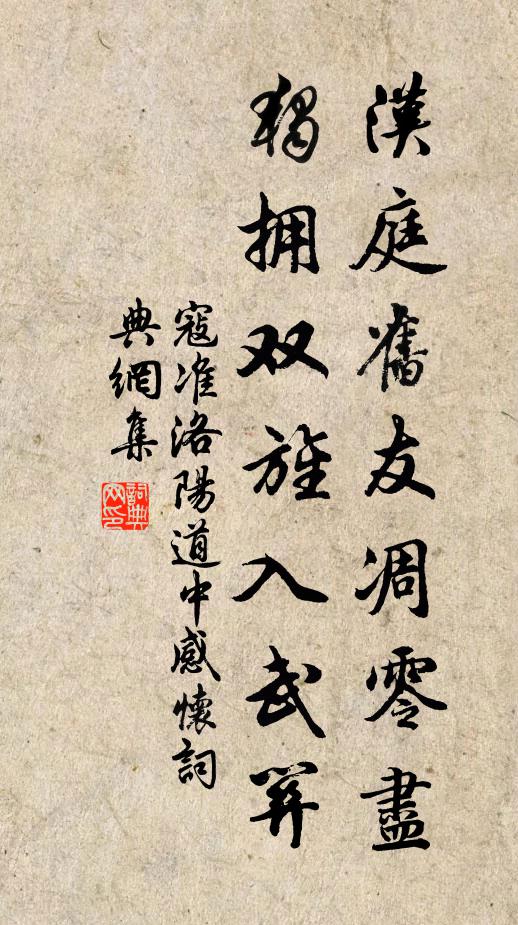 漢庭舊友凋零盡
獨拥双旌入武關
寇准洛陽道中感懷詞
典網集
詞典
网印